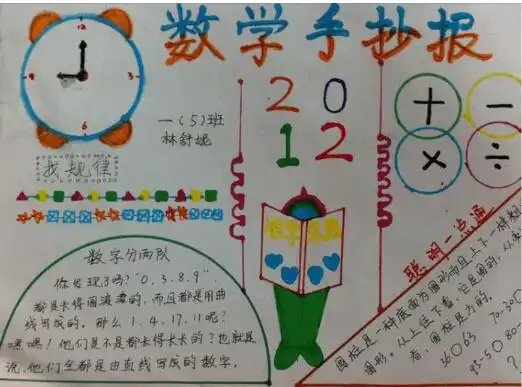 数学手抄报
12
3
6
9
一(5)班
林舒妮
2 0
1 2
+
-
×
÷
找规律
数学乐园
数字分两队
你发现了吗?"0.3.8.9"
都是长得圆滚滚的,而且都是用曲
线写成的。那么1.4.17.11呢?
嘿嘿!他们是不是都长得长长的?也就是
说,他们全都是由直线写成的数字。
聪明一点通
圆柱是一种底面为圆形而且上下一样粗
图形。从上往下看,它是圆的,从
看,圆柱是方的。
70-30
36 63
95-5 80
?